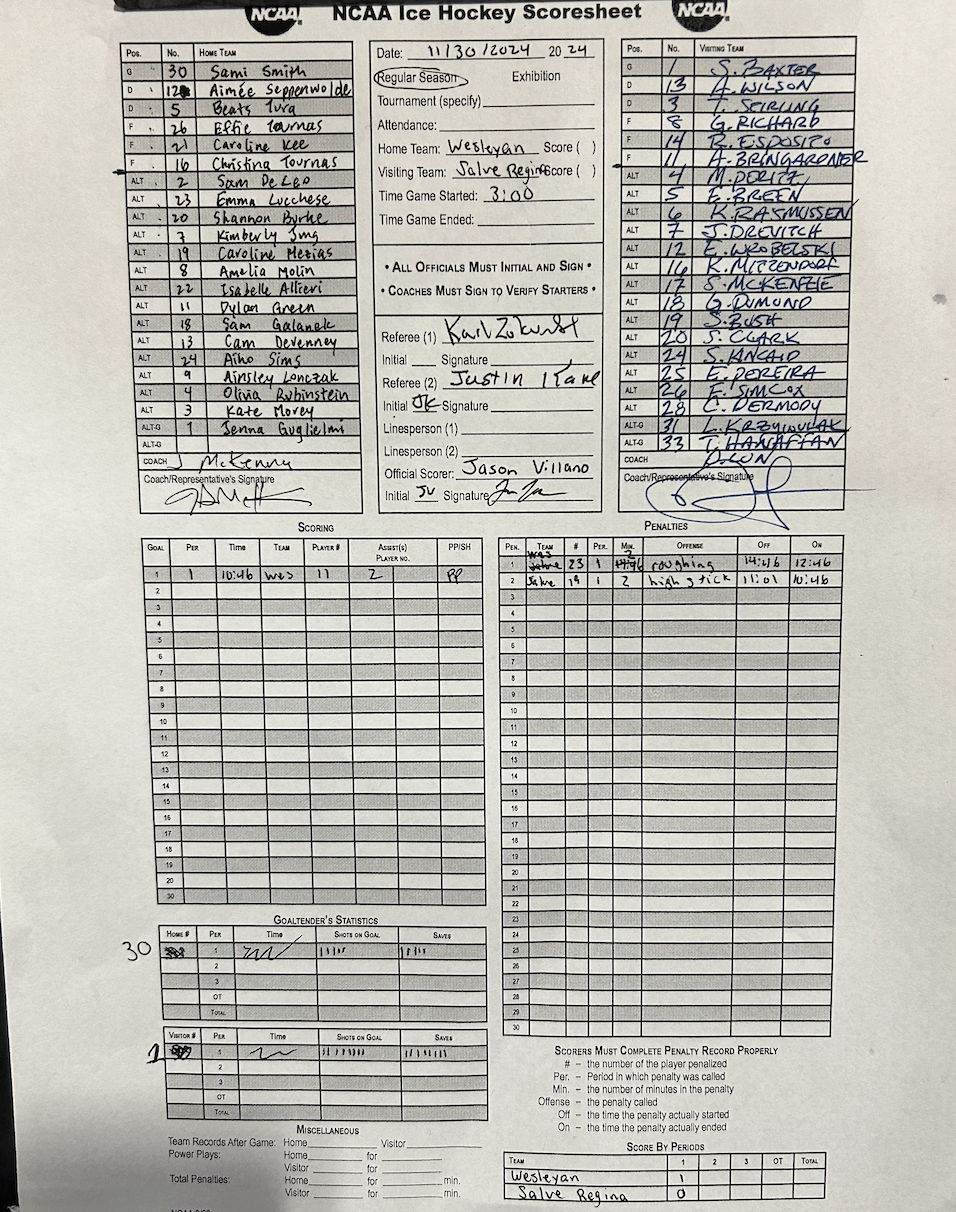 NCAA NCAA Ice Hockey Scoresheet NCAA
Pos. No. HOME TEAM
G 30 Sami Smith
D 12 Aimée Seppenwolde
D 5 Beats Iura
F 26 Effie Tournas
F 21 Caroline Kee
F 16 Christina Tournas
ALT 2 Sam De Leo
ALT 23 Emma Lucchese
ALT 20 Shannon Byrne
ALT 7 Kimberly Jung
ALT 19 Caroline Mezias
ALT 8 Amelia Molin
ALT 22 Isabelle Altieri
ALT 11 Dylan Green
ALT 18 Sam Galanek
ALT 13 Cam Devenney
ALT 24 Aino Sims
ALT 9 Ainsley Lonczak
ALT 4 Olivia Rubinstein
ALT 3 Kate Morey
ALT-G 1 Jenna Guglielmi
ALT-G
COACH J McKenna
Coach/Representative's Signature
Date: 11/30/2024 20 24
Regular Season Exhibition
Tournament (specify)
Attendance:
Home Team: Wesleyan Score ( )
Visiting Team: Salve Regina Score ( )
Time Game Started: 3:00
Time Game Ended:
• ALL OFFICIALS MUST INITIAL AND SIGN •
• COACHES MUST SIGN TO VERIFY STARTERS •
Referee (1)
Initial Signature
Referee (2) Justin Kane
Initial JK Signature
Linesperson (1)
Linesperson (2)
Official Scorer: Jason Villano
Initial JV Signature
Pos. No. VISITING TEAM
G 1 S. BAXTER
D 13 A. WILSON
D 3 T. STIRLING
F 8 G. RICHARD
F 14 R. ESPOSITO
F 11 A. BRINGARDNER
ALT 4 M. DERIZZI
ALT 5 E. BREEN
ALT 6 K. RASMUSSEN
ALT 7 J. DREVITCH
ALT 12 E. WROBELSKI
ALT 16 K. MITZENDORF
ALT 17 S. MCKENZIE
ALT 18 G. DUMOND
ALT 19 S. BUSH
ALT 20 S. CLARK
ALT 24 S. KINCAID
ALT 25 E. PEREIRA
ALT 26 E. SIMCOX
ALT 28 C. DERMODY
ALT-G 31
ALT-G 33 T. HANAFFAN
COACH
Coach/Representative's Signature
SCORING
GOAL PER Time TEAM PLAYER # ASSIST(S) PLAYER NO. PP/SH
1 1 10:46 Wes 11 2 PP
2
3
4
5
6
7
8
9
10
11
12
13
14
15
16
17
18
19
20
30
PENALTIES
PEN. TEAM # PER. MIN. OFFENSE OFF ON
1 Wes 23 1 2 roughing 14:46 12:46
2 Salve 19 1 2 high stick 11:01 10:46
3
4
5
6
7
8
9
10
11
12
13
14
15
16
17
18
19
20
21
22
23
24
25
26
27
28
29
30
GOALTENDER'S STATISTICS
HOME # PER Time SHOTS ON GOAL SAVES
30 1
2
3
OT
TOTAL
VISITOR # PER Time SHOTS ON GOAL SAVES
1 1
2
3
OT
TOTAL
MISCELLANEOUS
Team Records After Game: Home Visitor
Power Plays: Home for
Visitor for
Total Penalties: Home for min.
Visitor for min.
SCORERS MUST COMPLETE PENALTY RECORD PROPERLY
# – the number of the player penalized
Per. – Period in which penalty was called
Min. – the number of minutes in the penalty
Offense – the penalty called
Off – the time the penalty actually started
On – the time the penalty actually ended
SCORE BY PERIODS
TEAM 1 2 3 OT TOTAL
Wesleyan 1
Salve Regina 0